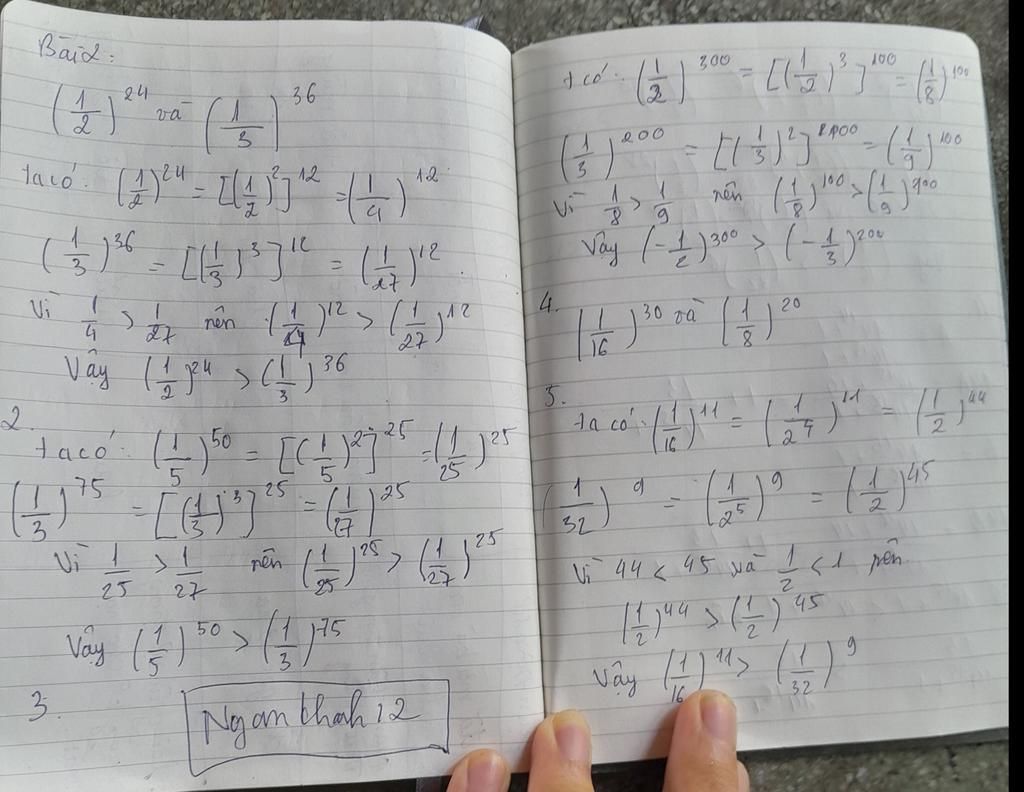 Bài 2:
(1/2)^24 và (1/3)^36
ta có: (1/2)^24 = [(1/2)^2]^12 = (1/4)^12
(1/3)^36 = [(1/3)^3]^12 = (1/27)^12
Vì 1/4 > 1/27 nên (1/4)^12 > (1/27)^12
Vậy (1/2)^24 > (1/3)^36
2.
ta có: (1/5)^50 = [(1/5)^2]^25 = (1/25)^25
(1/3)^75 = [(1/3)^3]^25 = (1/27)^25
Vì 1/25 > 1/27 nên (1/25)^25 > (1/27)^25
Vậy (1/5)^50 > (1/3)^75
3.
Ngan thanh 12
ta có: (1/2)^300 = [(1/2)^3]^100 = (1/8)^100
(1/3)^200 = [(1/3)^2]^100 = (1/9)^100
Vì 1/8 > 1/9 nên (1/8)^100 > (1/9)^100
Vậy (-1/2)^300 > (-1/3)^200
4.
(1/16)^30 và (1/8)^20
5.
ta có: (1/16)^11 = (1/2^4)^11 = (1/2)^44
(1/32)^9 = (1/2^5)^9 = (1/2)^45
Vì 44 < 45 và 1/2 < 1 nên
(1/2)^44 > (1/2)^45
Vậy (1/16)^11 > (1/32)^9